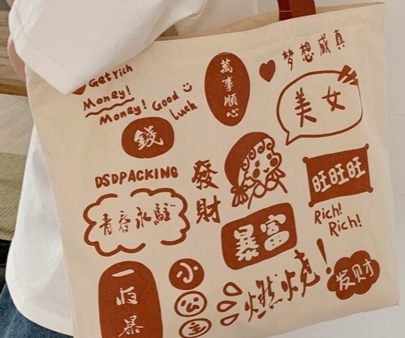 Get rich
Money!
Money! Good luck
錢
萬事順心
梦想成真
美女
DSDPACKING
發財
旺旺旺
Rich!
Rich!
青春永駐
暴富
燃烧!
发财
一夜暴
小公主